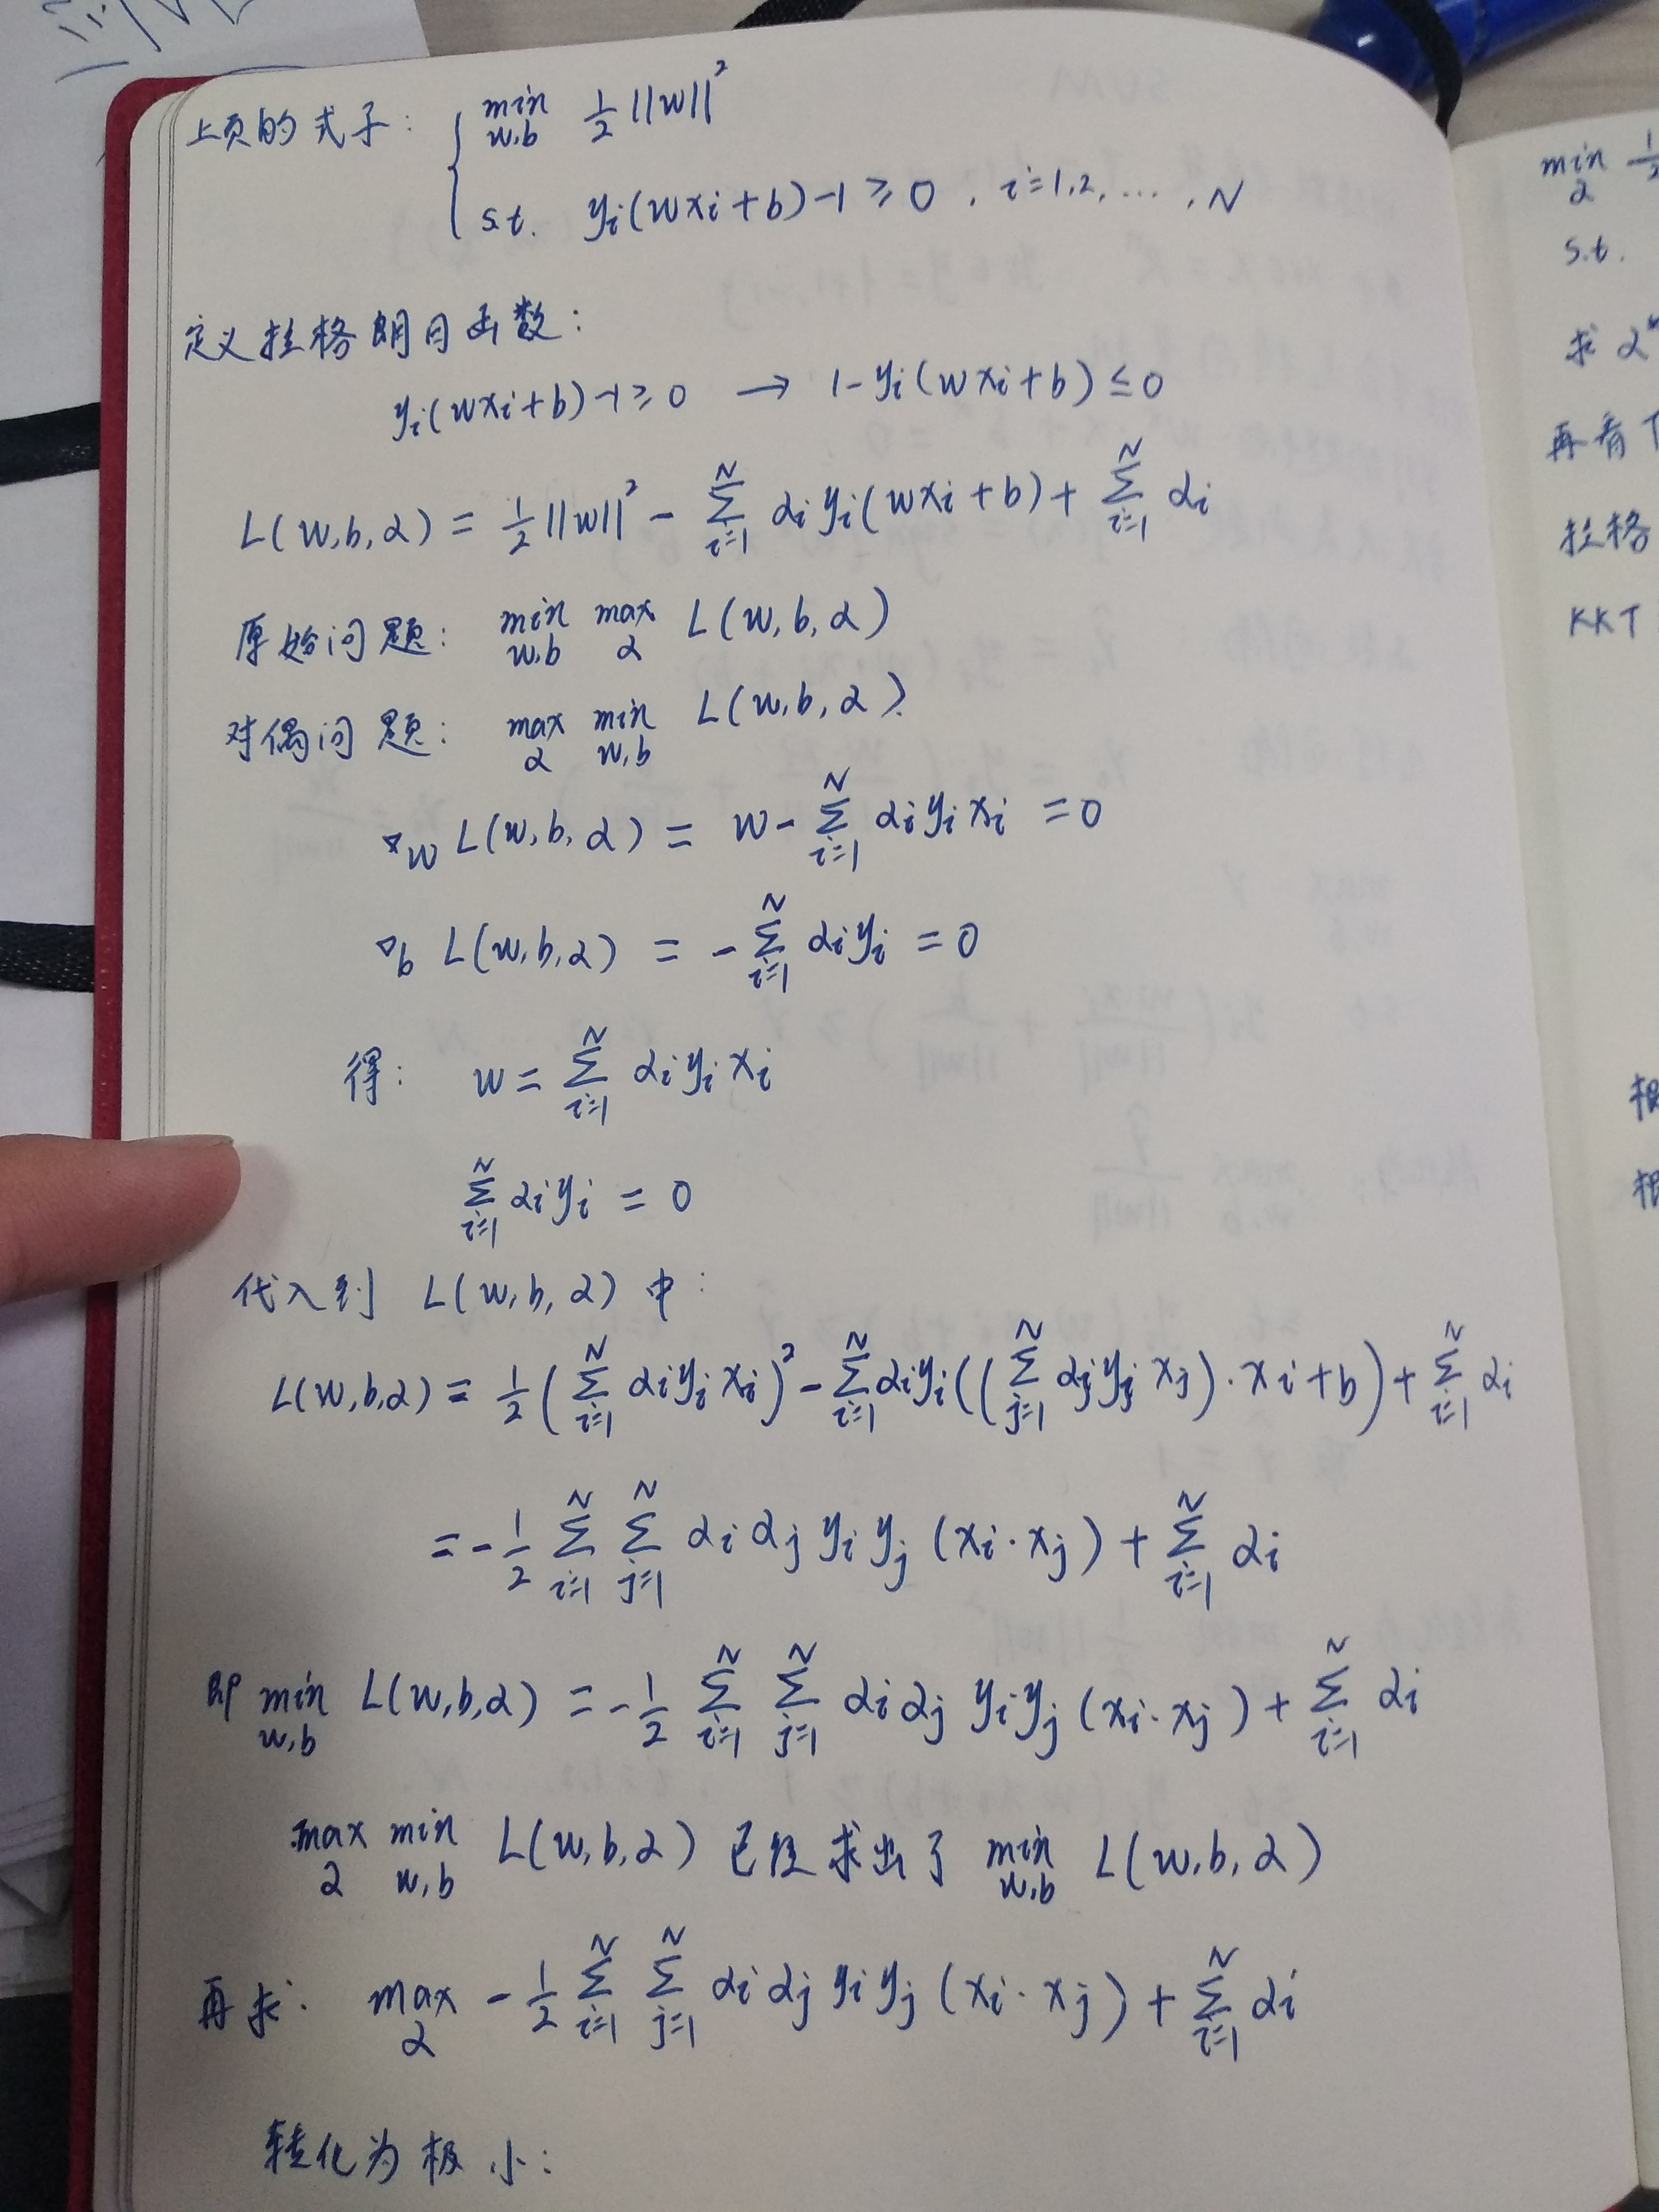 上页的式子: { min_{w,b} ½||w||²
s.t. yᵢ(wxᵢ+b)-1≥0, i=1,2,…,N
定义拉格朗日函数:
yᵢ(wxᵢ+b)-1≥0 → 1-yᵢ(wxᵢ+b)≤0
L(w,b,α) = ½||w||² - Σ_{i=1}^N αᵢyᵢ(wxᵢ+b) + Σ_{i=1}^N αᵢ
原始问题: min_{w,b} max_α L(w,b,α)
对偶问题: max_α min_{w,b} L(w,b,α).
∇_w L(w,b,α) = w - Σ_{i=1}^N αᵢyᵢxᵢ = 0
∇_b L(w,b,α) = -Σ_{i=1}^N αᵢyᵢ = 0
得: w = Σ_{i=1}^N αᵢyᵢxᵢ
Σ_{i=1}^N αᵢyᵢ = 0
代入到 L(w,b,α) 中:
L(w,b,α) = ½(Σ_{i=1}^N αᵢyᵢxᵢ)² - Σ_{i=1}^N αᵢyᵢ((Σ_{j=1}^N αⱼyⱼxⱼ)·xᵢ+b) + Σ_{i=1}^N αᵢ
= -½ Σ_{i=1}^N Σ_{j=1}^N αᵢαⱼyᵢyⱼ(xᵢ·xⱼ) + Σ_{i=1}^N αᵢ
即 min_{w,b} L(w,b,α) = -½ Σ_{i=1}^N Σ_{j=1}^N αᵢαⱼyᵢyⱼ(xᵢ·xⱼ) + Σ_{i=1}^N αᵢ
max_α min_{w,b} L(w,b,α) 已经求出了 min_{w,b} L(w,b,α)
再求: max_α -½ Σ_{i=1}^N Σ_{j=1}^N αᵢαⱼyᵢyⱼ(xᵢ·xⱼ) + Σ_{i=1}^N αᵢ
转化为极小:
min_α
s.t.
求 α
再看
拉格
KKT
根
根